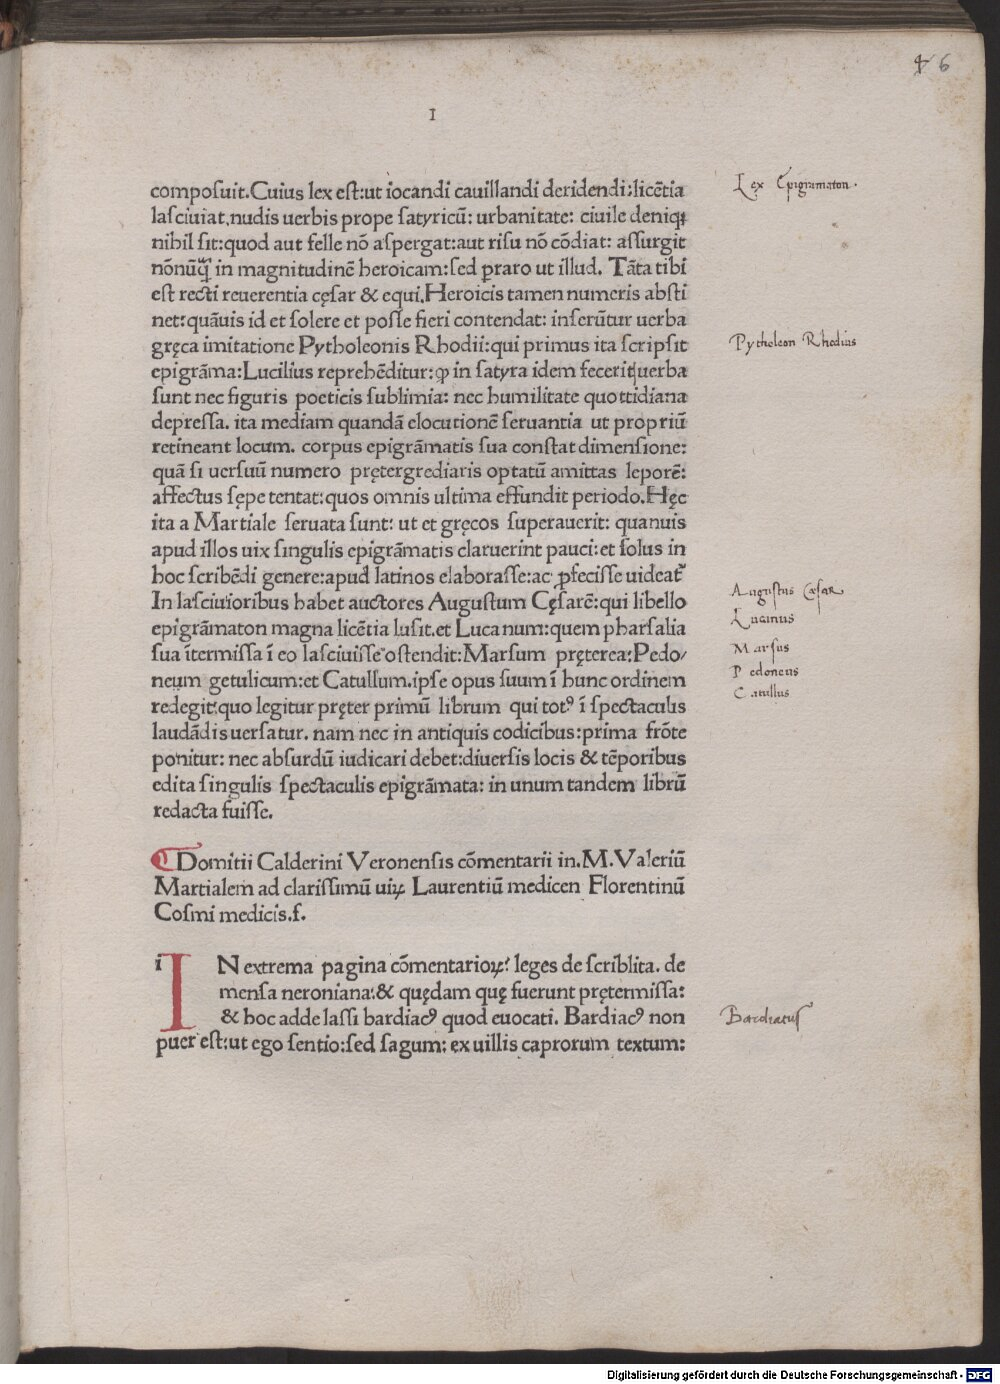 6
1
compoſuit.Cuius lex eſt:ut iocandi cauillandi deridendi:licētia
laſciuiat.nudis uerbis prope ſatyricū: urbanitate: ciuile deniqꝫ
nihil ſit:quod aut felle nō aſpergat:aut riſu nō cōdiat: aſſurgit
nōnūqͣ in magnitudinē heroicam:ſed ꝑraro ut illud. Tāta tibi
eſt recti reuerentia cęſar & equi.Heroicis tamen numeris abſti
net:quāuis id et ſolere et poſſe fieri contendat: inſerūtur uerba
gręca imitatione Pytholeonis Rhodii:qui primus ita ſcripſit
epigrāma:Lucilius reprehēditur:ꝙ in ſatyra idem fecerit uerba
ſunt nec figuris poeticis ſublimia: nec humilitate quottidiana
depreſſa. ita mediam quandā elocutionē ſeruantia ut propriū
retineant locum. corpus epigrāmatis ſua conſtat dimenſione:
quā ſi uerſuū numero prętergrediaris optatū amittas leporē:
affectus ſępe tentat:quos omnis ultima effundit periodo.Hęc
ita a Martiale ſeruata ſunt: ut et gręcos ſuperauerit: quanuis
apud illos uix ſingulis epigrāmatis claruerint pauci:et ſolus in
hoc ſcribēdi genere:apud latinos elaboraſſe:ac ꝓfeciſſe uideat᷑
In laſciuioribus habet auctores Auguſtum Cęſarē:qui libello
epigrāmaton magna licētia luſit.et Lucanum:quem pharſalia
ſua ītermiſſa ī eo laſciuiſſe oſtendit:Marſum pręterea:Pedo/
neum getulicum:et Catullum.ipſe opus ſuum ī hunc ordinem
redegit:quo legitur pręter primū librum qui totꝰ ī ſpectaculis
laudādis uerſatur. nam nec in antiquis codicibus:prima frōte
ponitur: nec abſurdū iudicari debet:diuerſis locis & tēporibus
edita ſingulis ſpectaculis epigrāmata: in unum tandem librū
redacta fuiſſe.
Domitii Calderini Veronenſis cōmentarii in.M.Valeriū
Martialem ad clariſſimū uiꝝ Laurentiū medicen Florentinū
Coſmi medicis.f.
i
IN extrema pagina cōmentarioꝝ: leges de ſcriblita. de
menſa neroniana:& quędam quę fuerunt prętermiſſa:
& hoc adde laſſi bardiacꝰ quod euocati. Bardiacꝰ non
puer eſt:ut ego ſentio:ſed ſagum: ex uillis caprorum textum:
Lex Epigramaton.
Pytholeon Rhodius
Auguſtus Cæſar
Lucanus
Marſus
Pedoneus
Catullus
Bardiacuſ
Digitalisierung gefördert durch die Deutsche Forschungsgemeinschaft - DFG